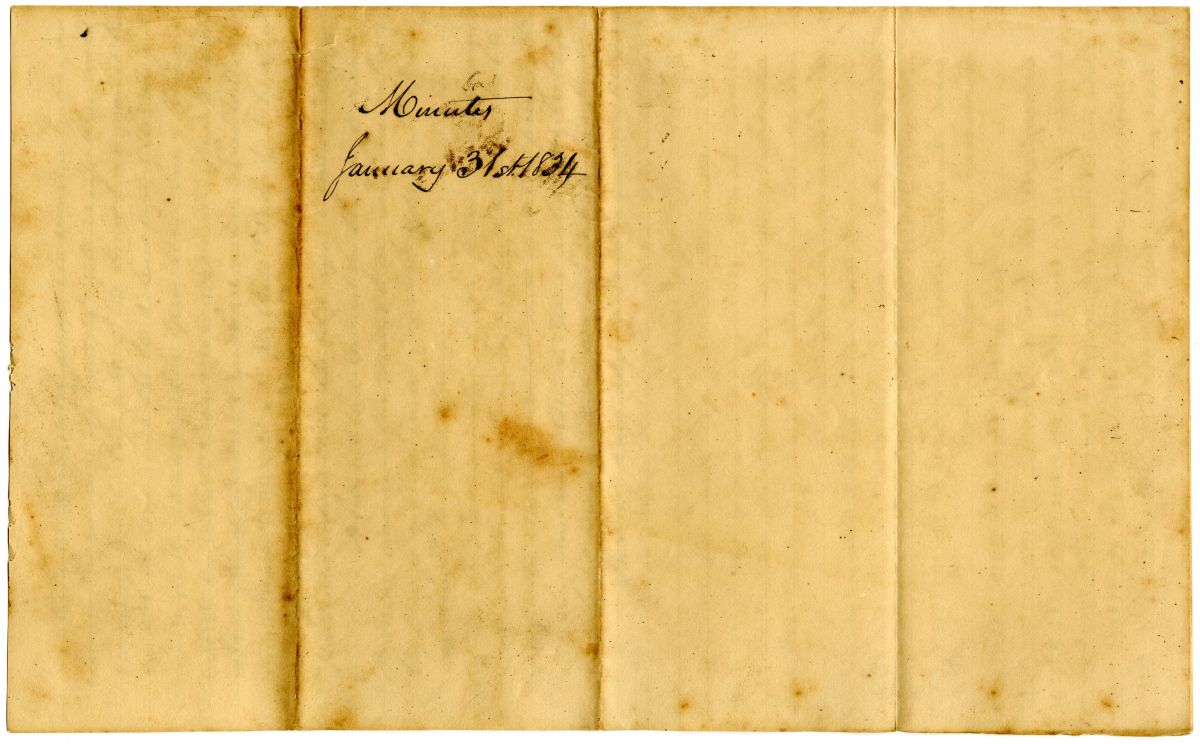 Minutes
January 31st. 1834